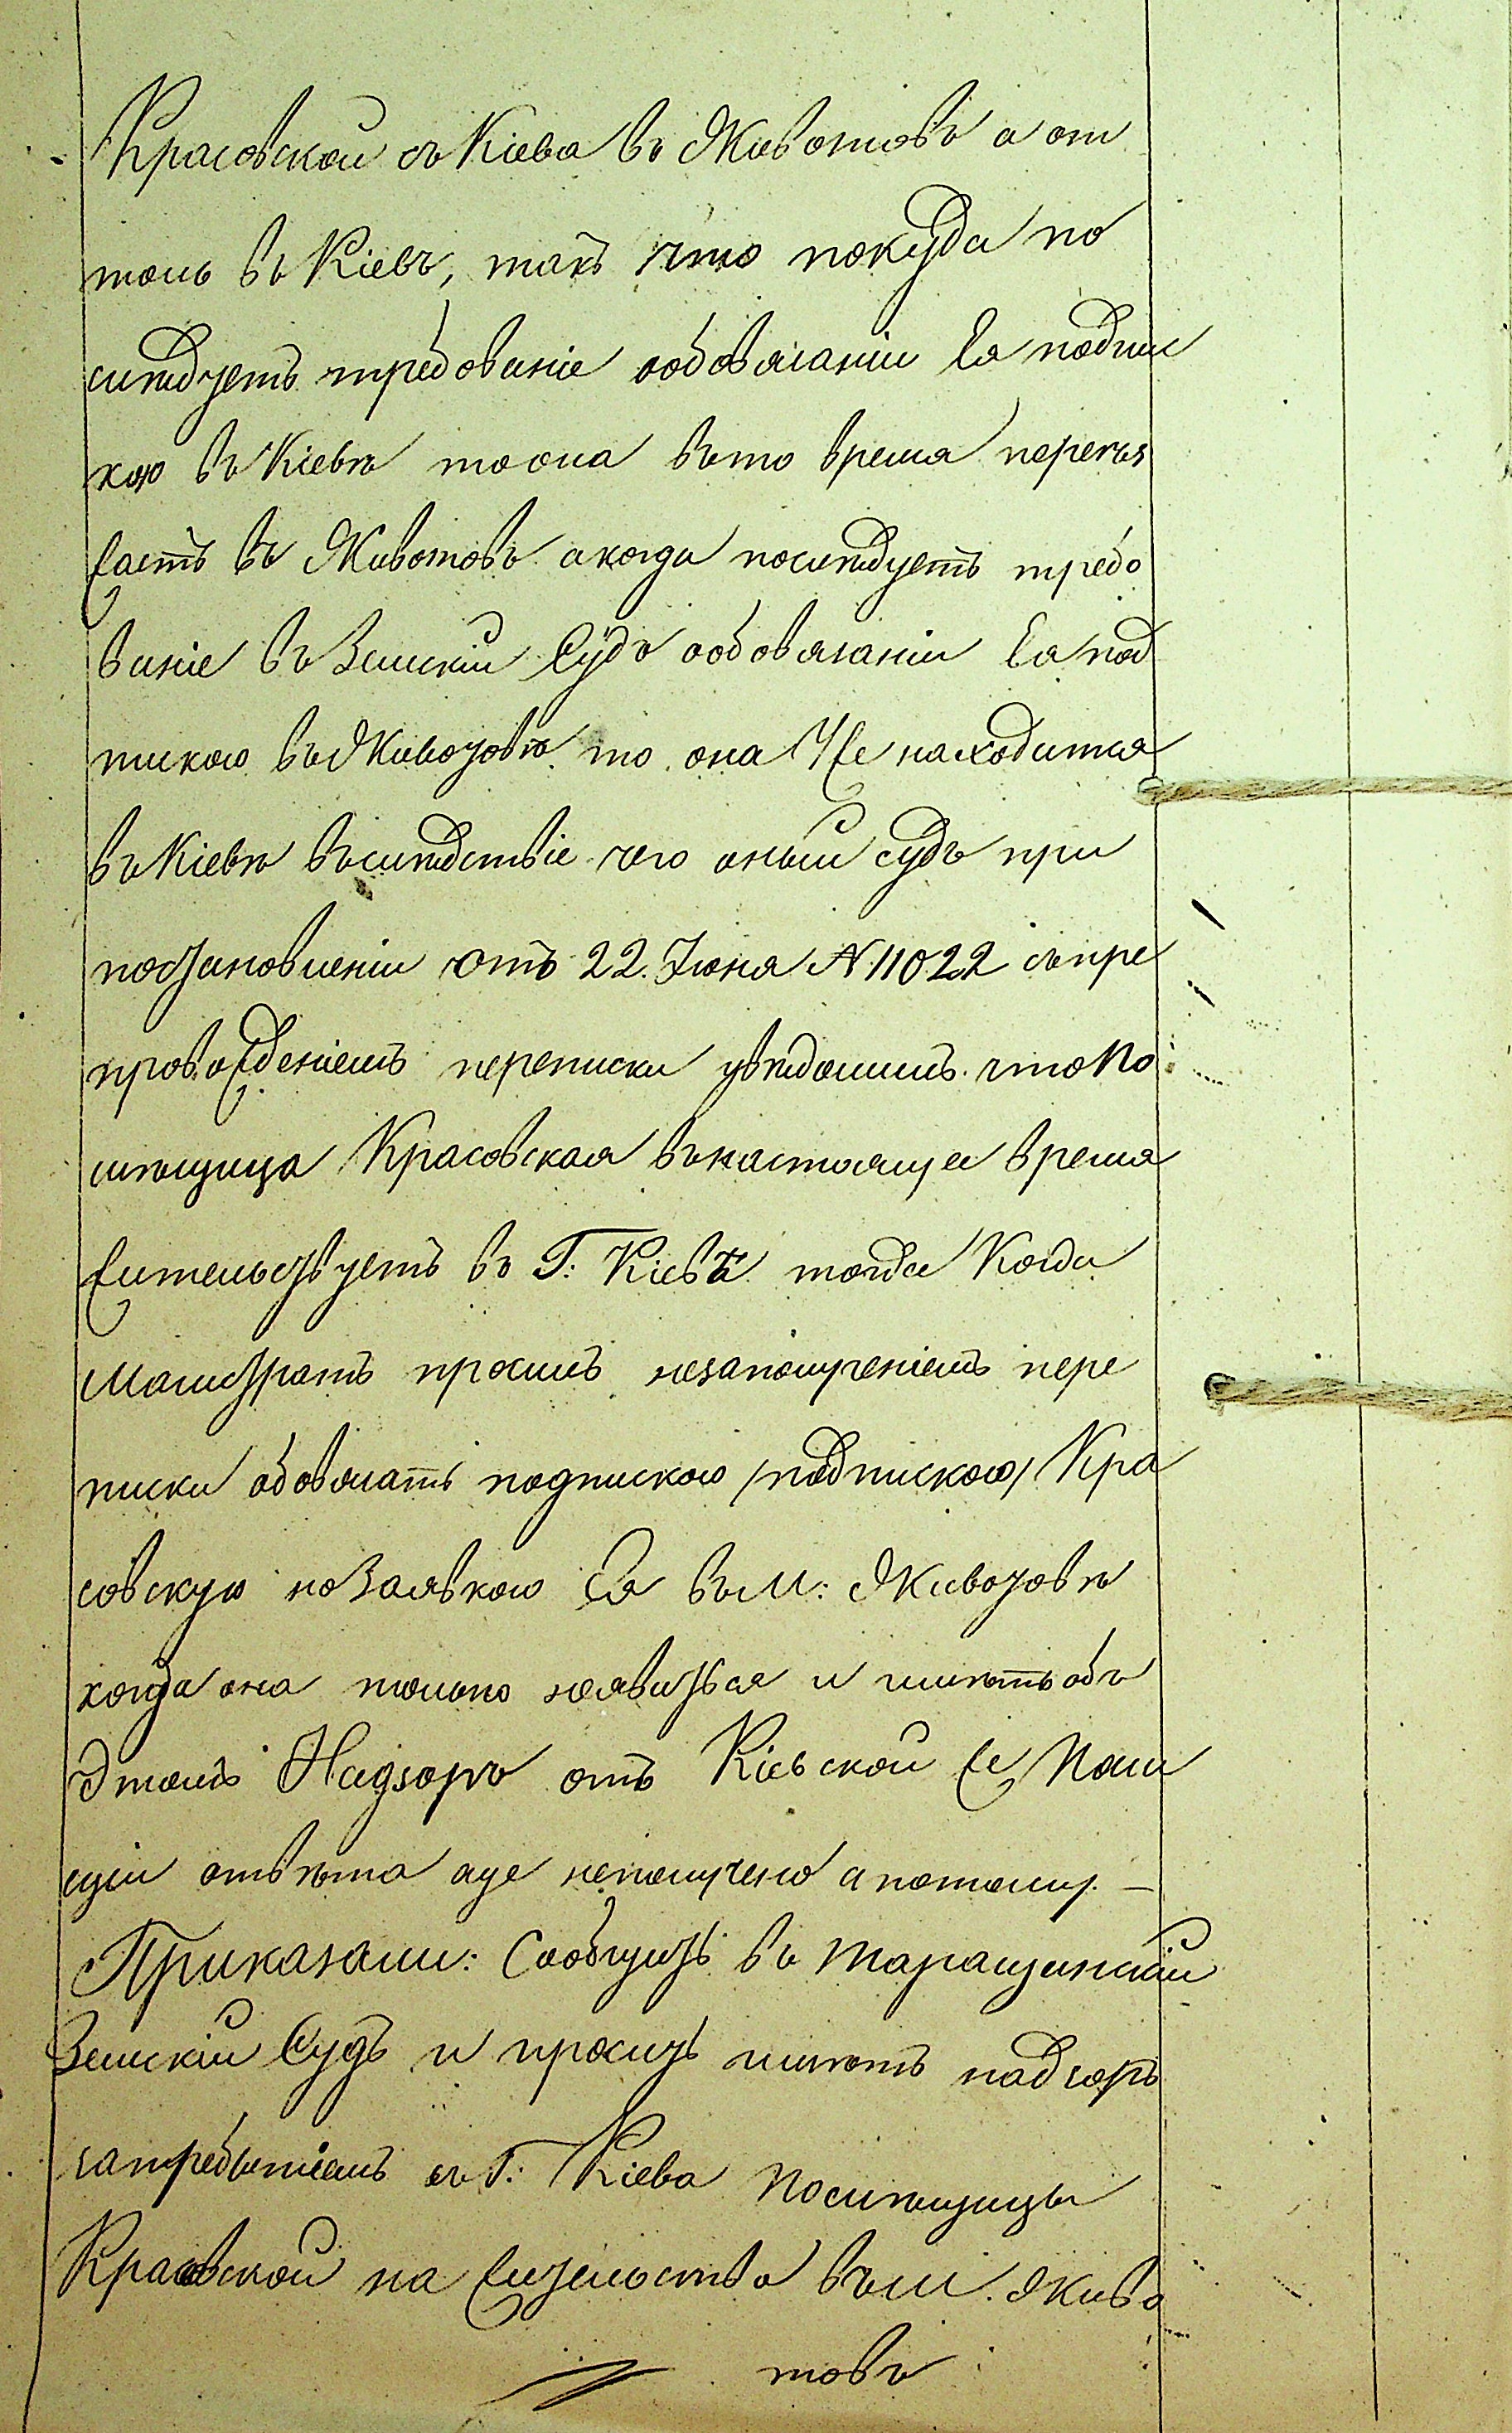 Красовской съ Кіева въ Животовъ а от
толь въ Кіевъ, такъ что покуда по
слѣдуетъ требованіе ообовязаніи Ея подпис
кою въ Кіевѣ то она въ то время переѣз
жаетъ въ Животовъ а когда послѣдуетъ требо
ваніе въ Земскій Судъ ообовязаніи Ея под
пискою въ Животовѣ то она уже находится
въ Кіевѣ въслѣдствіе чего оный судъ при
постановленіи отъ 22. Іюня N 11022 съ пре
провожденіемъ переписки увѣдомилъ что По
мѣщица Красовская въ настоящее время
жительствуетъ въ Г: Кіевѣ тогда Когда
Магистратъ просилъ незаполученіемъ пере
писки обовязать подпискою /подпискою/ Кра
совскую но Заявкою Ея въ М: Животовѣ
когда она только появиться и имѣть объ
Этомъ Надзоръ отъ Кіевской же Поли
ціи отвѣта аще неполучено а потому. —
Приказали: Сообщить въ Таращинскій
Земскій Судъ и просить имѣть надзоръ
запребытіемъ съ Г: Кіева Помѣщицы
Красовской на жительство въ М. Живо
товъ